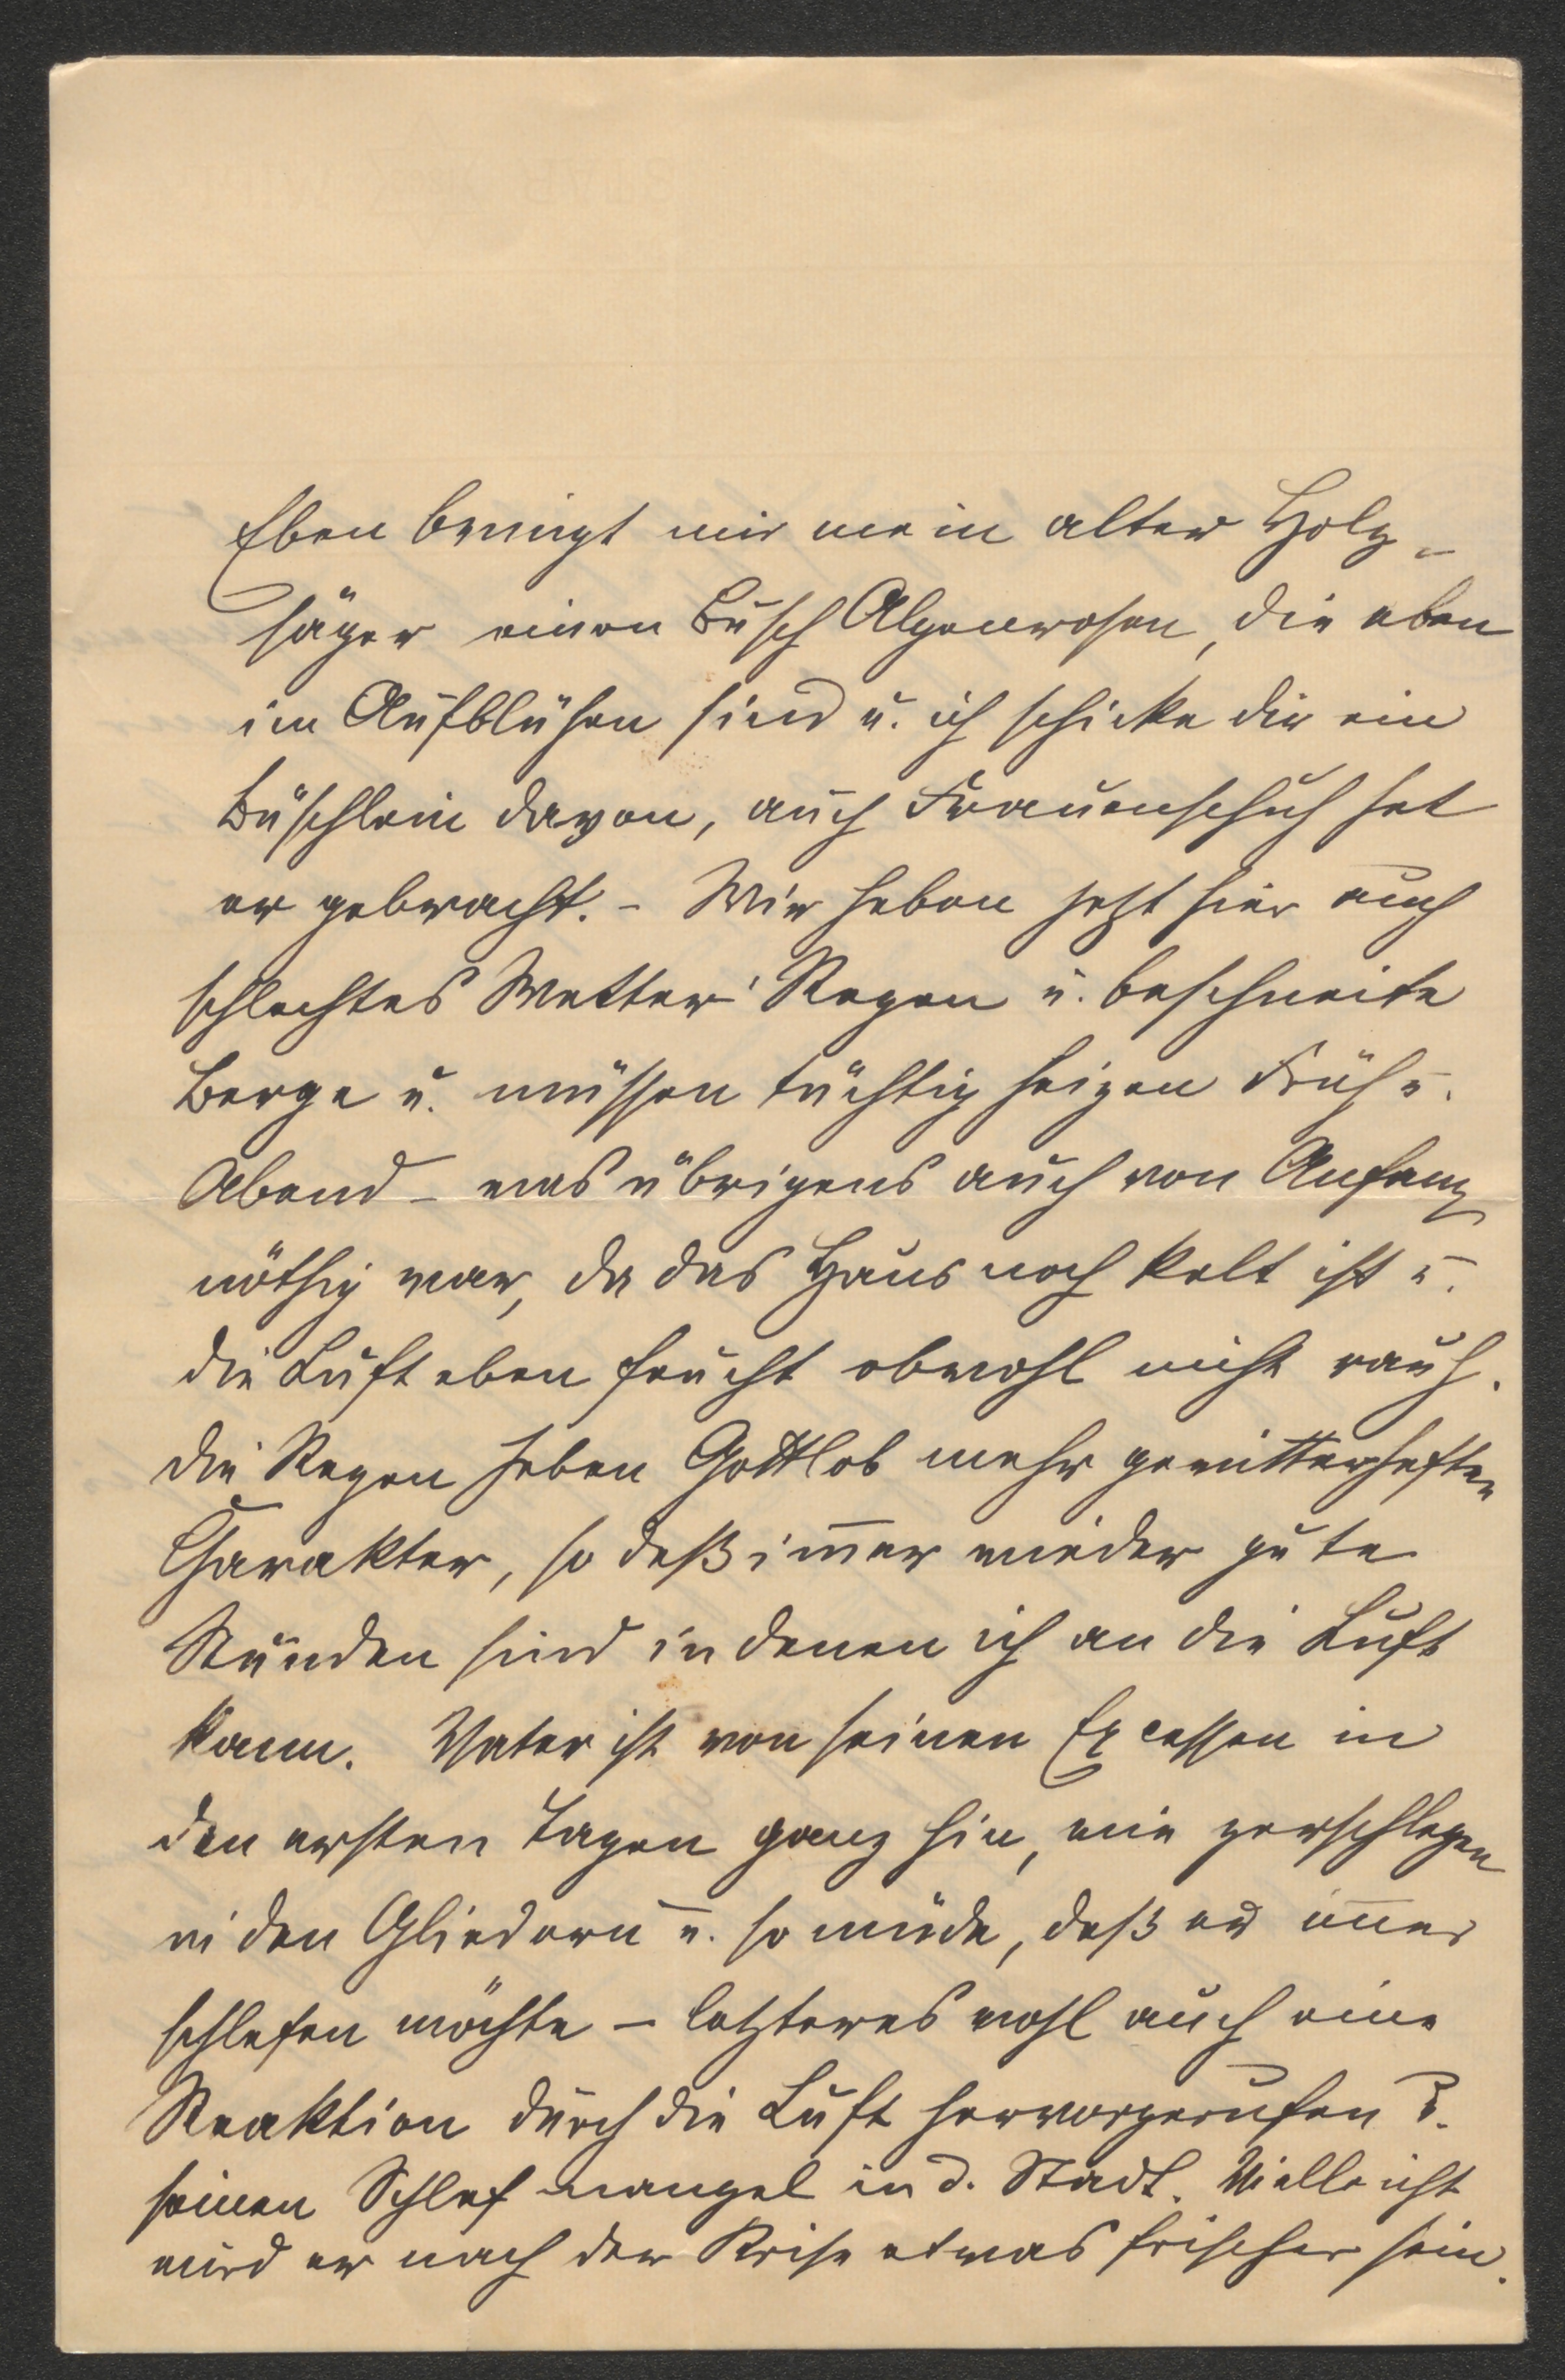 Eben bringt mir mein alter Holz-
säger einen Busch Alpenrosen, die eben
im Aufblühen sind u. ich schicke dir ein
Büschlein davon, auch Frauenschuh hat
er gebracht. – Wir haben jetzt hier auch
schlechtes Wetter Regen u. beschneite
Berge u. müssen tüchtig heizen Früh u.
Abend – was übrigens auch von Anfang
nöthig war, da das Haus noch kalt ist u.
die Luft eben feucht obwohl nicht rauh.
die Regen haben Gottlob mehr gewitterhaften
Charakter, so daß immer wieder gute
Stunden sind in denen ich an die Luft
kann. Vater ist von seinen Excessen in
den ersten Tagen ganz hin, wie zerschlagen
in den Gliedern u. so müde, daß er immer
schlafen möchte – letzteres wohl auch eine
Reaktion durch die Luft hervorgerufen u.
seinen Schlafmangel in d. Stadt. Vielleicht
wird er nach der Krise etwas frischer sein.